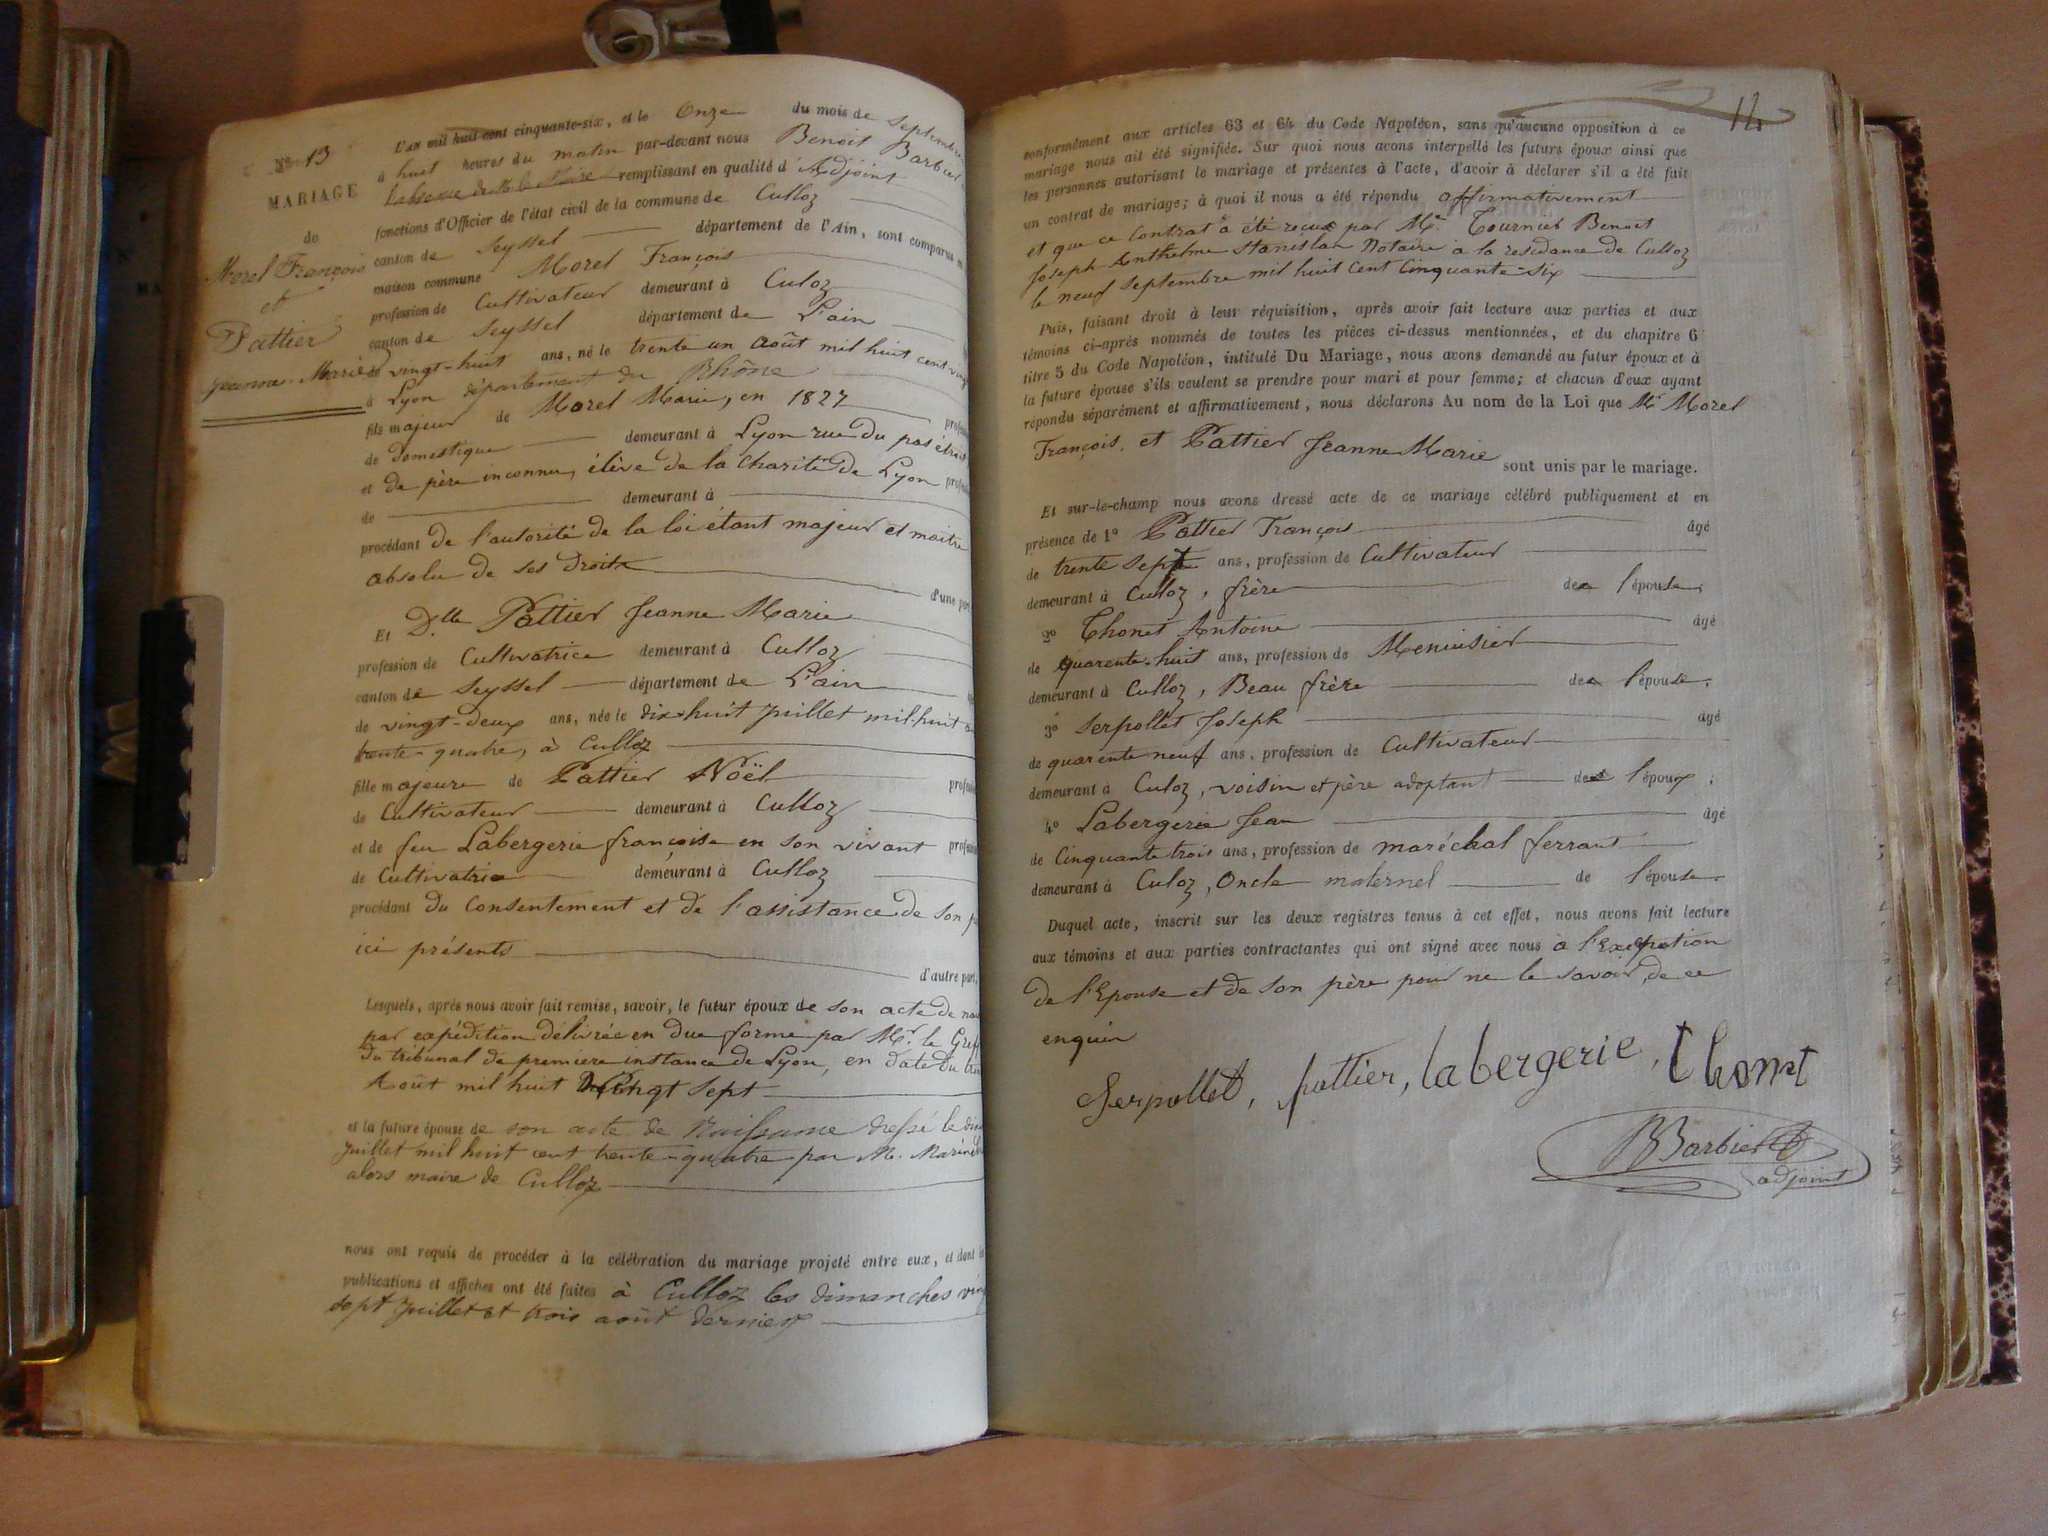 N° 13
MARIAGE
de
Morel François
et
Pattier
Jeanne-Marie
L'an mil huit cent cinquante-six, et le Onze du mois de Septembre
à huit heures du matin par-devant nous Benoit Barbier
remplissant en qualité d'Adjoint
fonctions d'Officier de l'état civil de la commune de Culloz
canton de Seyssel département de l'Ain, sont comparus en
maison commune Morel François
profession de Cultivateur demeurant à Culoz
canton de Seyssel département de L'ain
de vingt-huit ans, né le trente un Août mil huit cent vingt
à Lyon département du Rhône
fils majeur de Morel Marie, en 1827
de Domestique demeurant à Lyon rue du pas étroit
et de père inconnu, élève de la Charité de Lyon
de demeurant à
procédant de l'autorité de la loi étant majeur et maitre
absolu de ses droits
d'une part
Et D.lle Pattier Jeanne Marie
profession de Cultivatrice demeurant à Culloz
canton de Seyssel département de L'ain
de vingt-deux ans, née le dix-huit Juillet mil-huit
trente-quatre, à Culloz
fille majeure de Pattier Noël
de Cultivateur demeurant à Culloz
et de feu Labergerie françoise en son vivant
de Cultivatrice demeurant à Culloz
procédant du Consentement et de l'assistance de son
ici présents
d'autre part,
Lesquels, après nous avoir fait remise, savoir, le futur époux de son acte de
par expédition délivrée en due forme par Mr. le
du tribunal de premiere instance de Lyon, en date du
Août mil huit Vingt Sept
et la future épouse de son acte de Naissance dressé le
Juillet mil huit cent trente-quatre par M.
alors maire de Culloz
nous ont requis de procéder à la célébration du mariage projeté entre eux, et dont
publications et affiches ont été faites à Culloz les dimanches
sept Juillet et trois août dernier
14
conformément aux articles 63 et 64 du Code Napoléon, sans qu'aucune opposition à ce
mariage nous ait été signifiée. Sur quoi nous avons interpellé les futurs époux ainsi que
les personnes autorisant le mariage et présentes à l'acte, d'avoir à déclarer s'il a été fait
un contrat de mariage; à quoi il nous a été répondu affirmativement
et que ce Contrat a été reçu par Me. Tournier Benoit
Joseph Anthelme Stanislas Notaire à la residance de Culloz
le neuf Septembre mil huit Cent Cinquante-Six
Puis, faisant droit à leur réquisition, après avoir fait lecture aux parties et aux
témoins ci-après nommés de toutes les pièces ci-dessus mentionnées, et du chapitre 6
titre 5 du Code Napoléon, intitulé Du Mariage, nous avons demandé au futur époux et à
la future épouse s'ils veulent se prendre pour mari et pour femme; et chacun d'eux ayant
répondu séparément et affirmativement, nous déclarons Au nom de la Loi que Mr Morel
François. et Pattier Jeanne Marie
sont unis par le mariage.
Et sur-le-champ nous avons dressé acte de ce mariage célébré publiquement et en
présence de 1° Pattier François âgé
de trente sept ans, profession de Cultivateur
demeurant à Culloz, frère de l'épouse.
2° Thonet Antoine âgé
de quarente-huit ans, profession de Menuisier
demeurant à Culloz, Beau frère de l'épouse.
3° Serpollet Joseph âgé
de quarente neuf ans, profession de Cultivateur
demeurant à Culoz, voisin et père adoptant de l'époux;
4° Labergerie Jean âgé
de Cinquante trois ans, profession de maréchal ferrant
demeurant à Culoz, Oncle maternel de l'épouse.
Duquel acte, inscrit sur les deux registres tenus à cet effet, nous avons fait lecture
aux témoins et aux parties contractantes qui ont signé avec nous à l'Exeption
de l'Epouse et de son père pour ne le savoir, de ce
enquis
Serpollet, pattier, labergerie, Thonet
BBarbier
adjoint